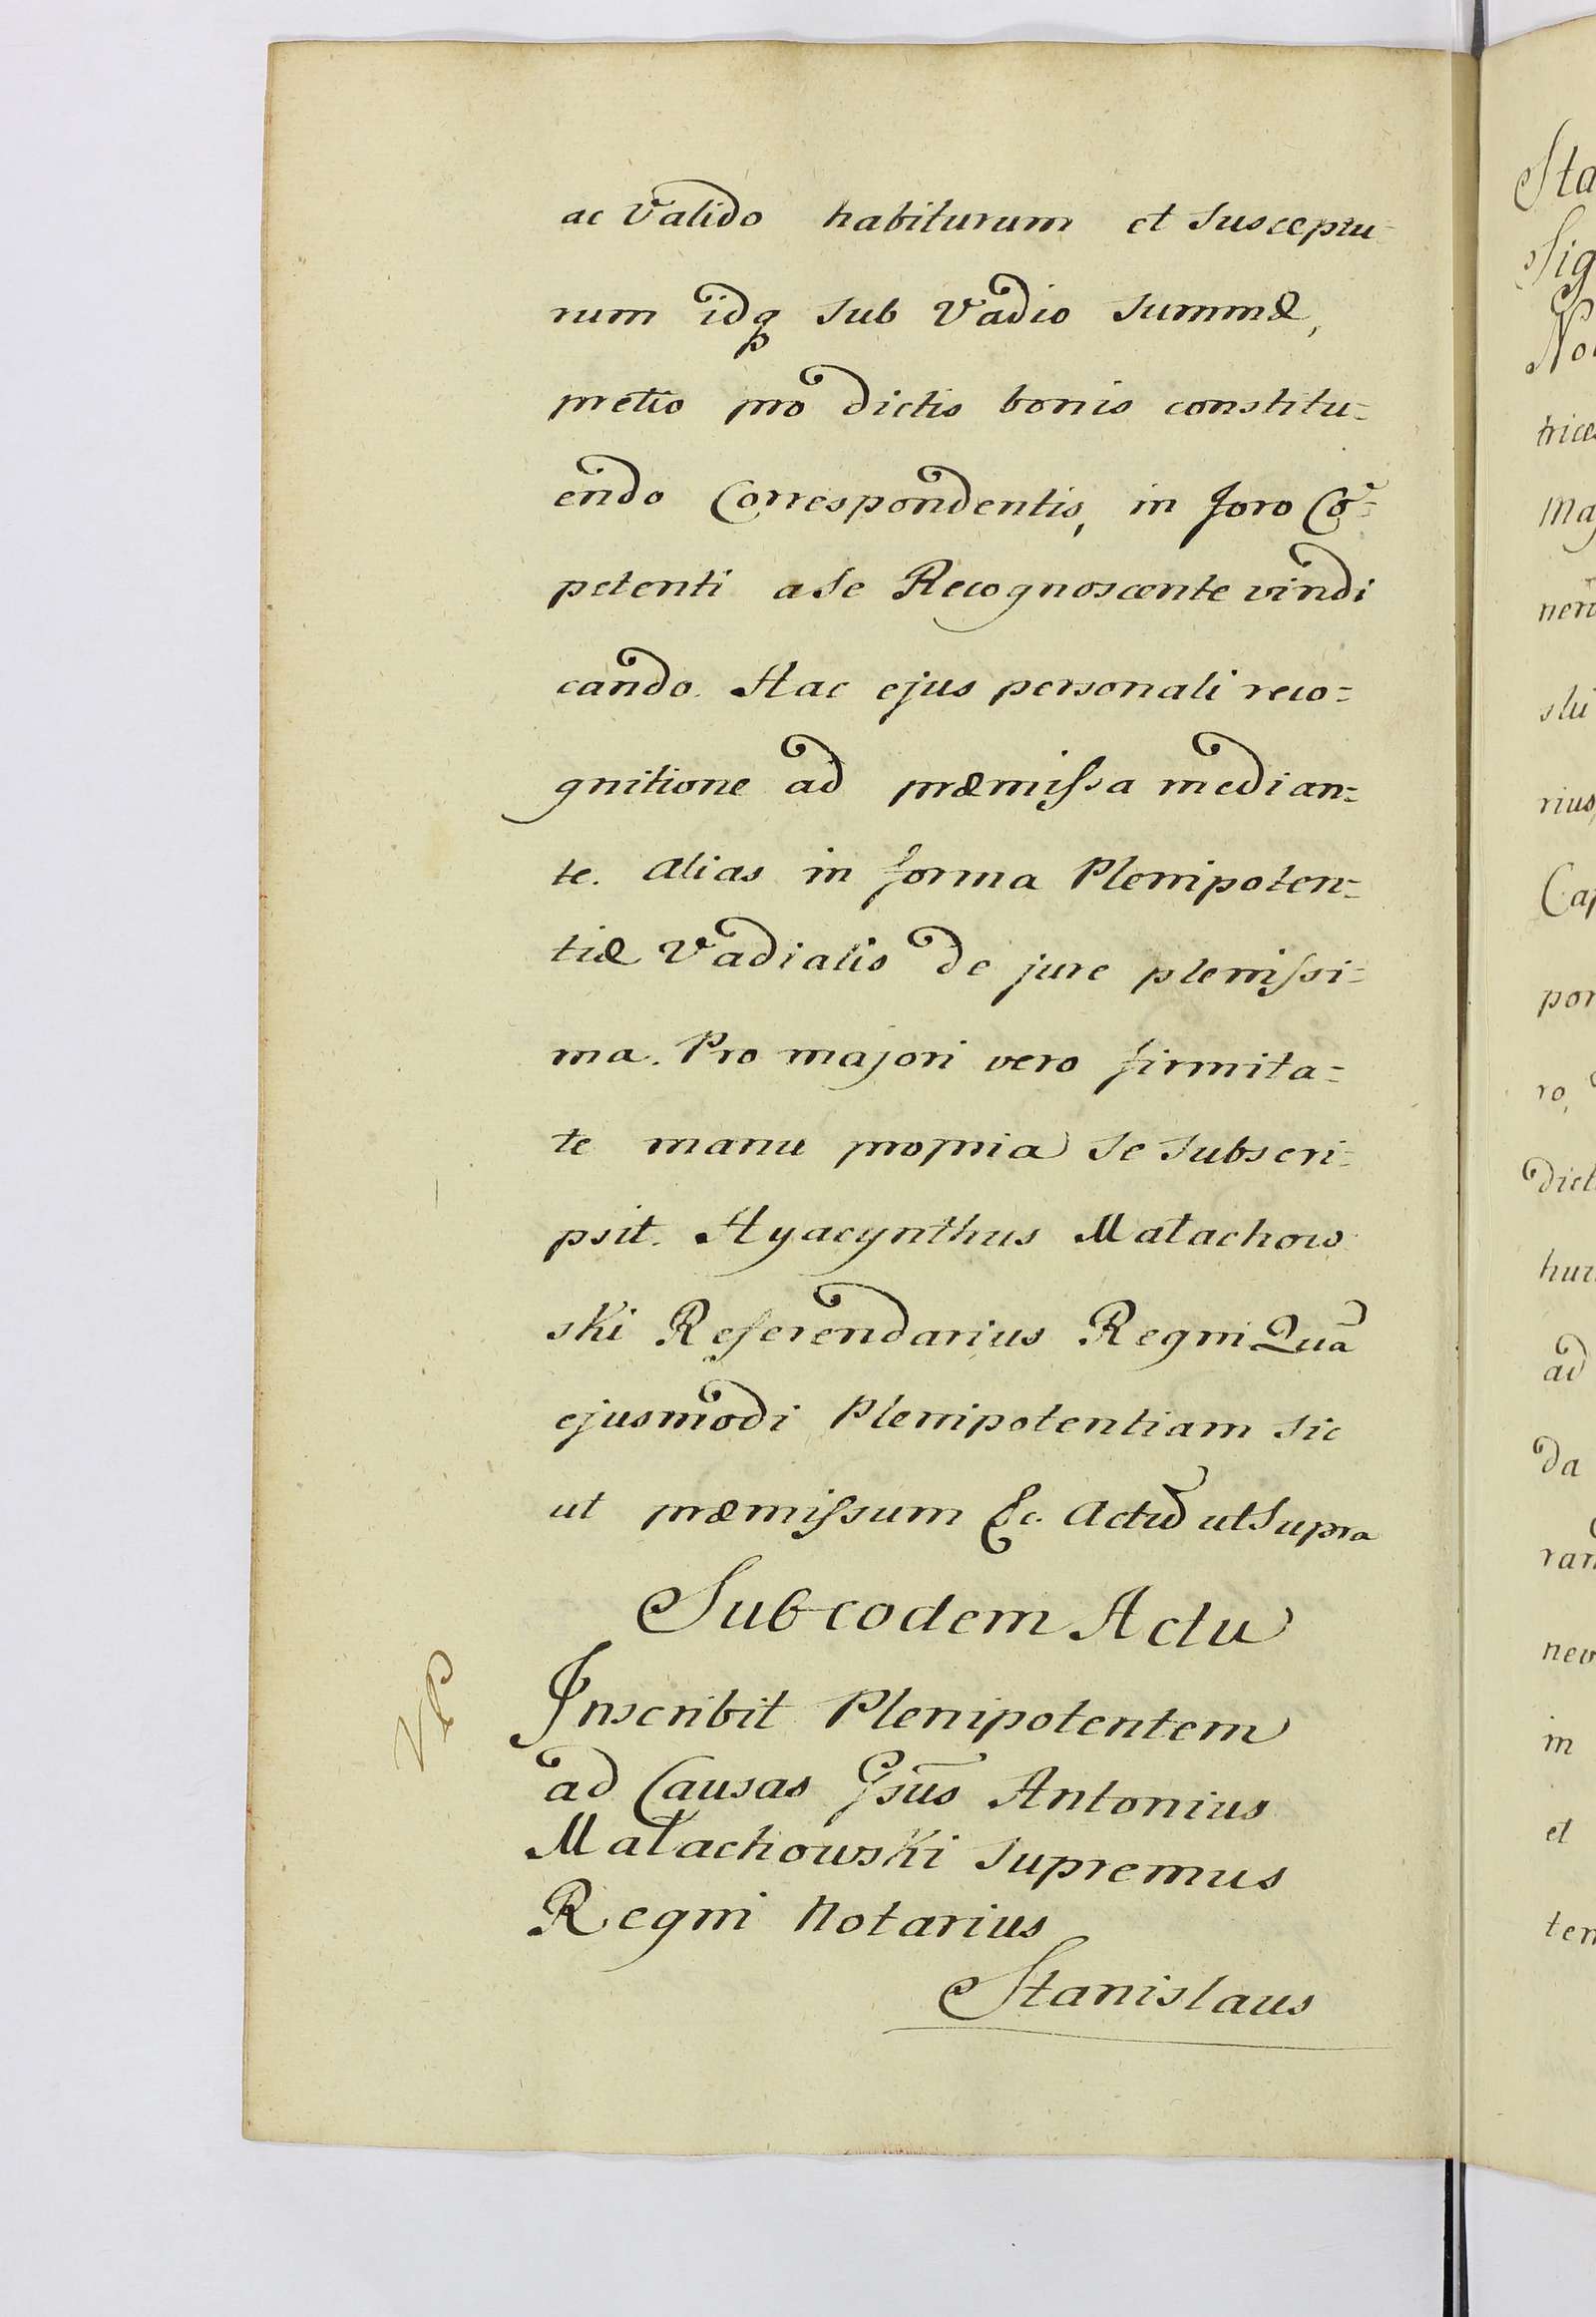 ac Valido habiturum et susceptu-
rum idq sub Vadio summæ,
pretio pro dictis bonis constitu=
endo Correspondentis, in foro Cõ=
petenti a se Recognoscente vindi
cando. Hac ejus personali reco=
gnitione ad præmissa median=
te. alias in forma Plenipoten=
tiæ Vadialis de jure plenissi=
ma. Pro majori vero firmita=
te manu propria se subscri=
psit. Hyacynthus Małachow
ski Referendarius Regni Quã
ejusmodi Plenipotentiam sic
ut præmissum &c. actũ ut supra
Sub eodem Actu
VP
Inscribit Plenipotentem
ad Causas Gsũs Antonius
Małachowski supremus
Regni Notarius
Stanislaus
Sta
Sig
No
trice
Ma
neri
slu
rius,
Cap
pon
ro,
dict
hur
ad
da
ran
nev
in
et
ten